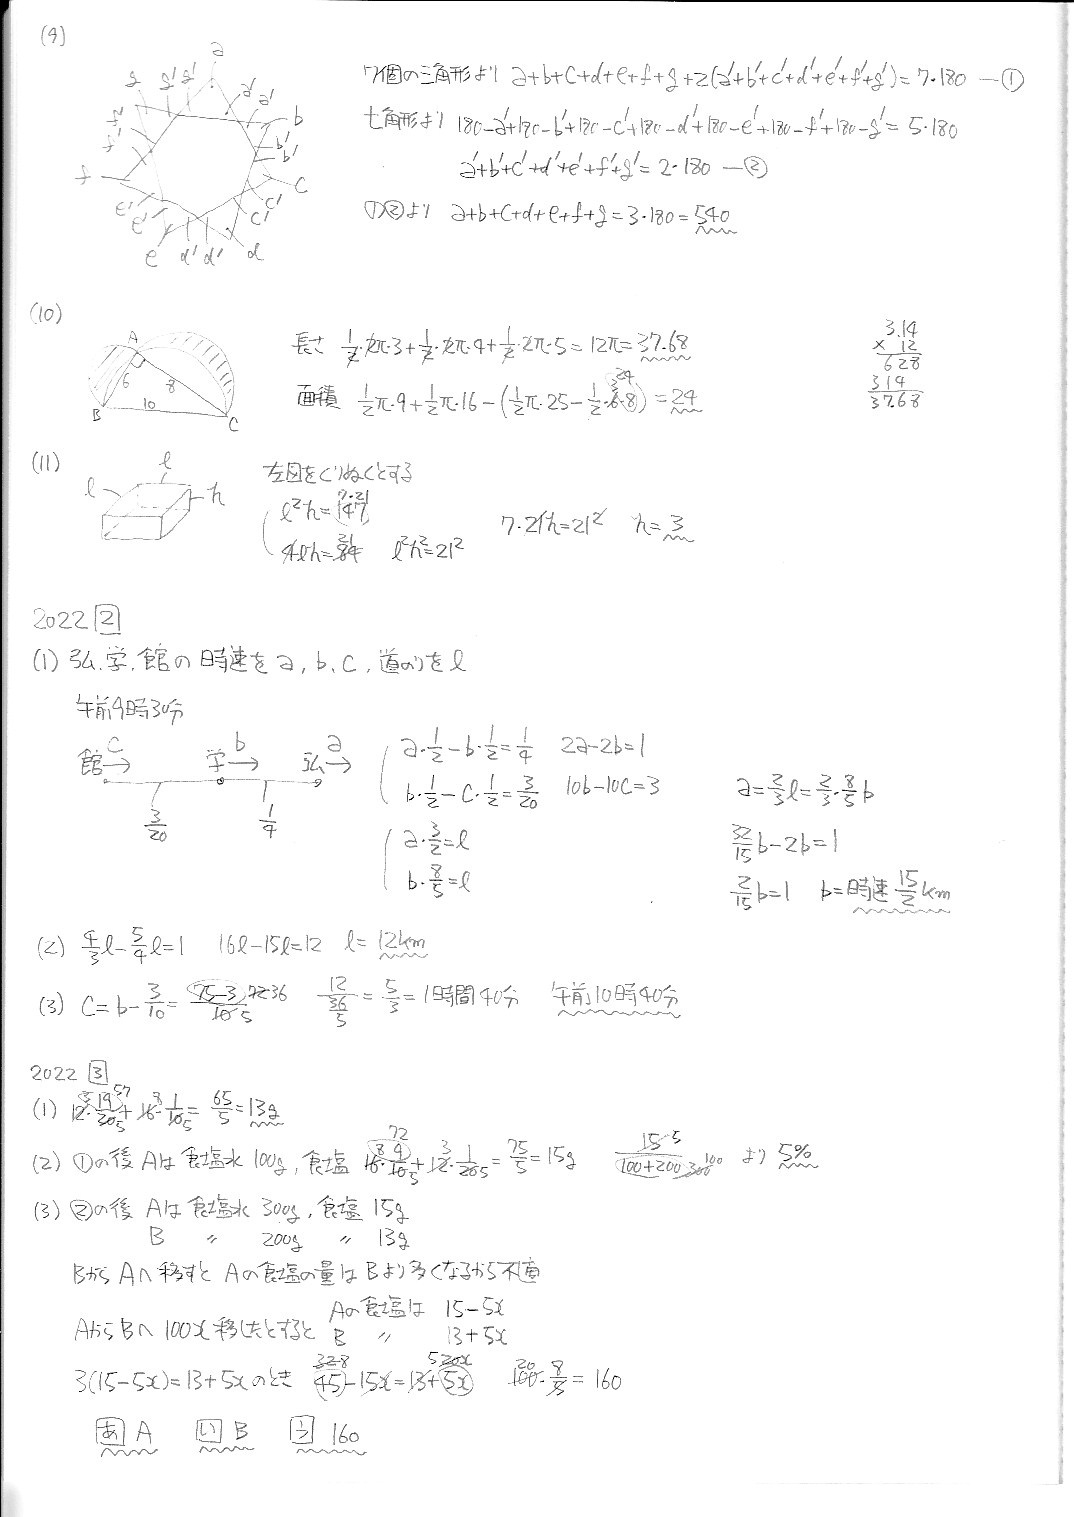 (9)
a
g g' g' a' a' b
f' f' b' b'
f c
e' e' c' c'
e d' d' d
7個の三角形より a+b+c+d+e+f+g+2(a'+b'+c'+d'+e'+f'+g')=7・180 ―①
七角形より 180-a'+180-b'+180-c'+180-d'+180-e'+180-f'+180-g'=5・180
a'+b'+c'+d'+e'+f'+g'=2・180 ―②
①②より a+b+c+d+e+f+g=3・180=540
(10)
A
6 8
B 10 C
長さ 1/2・2π・3+1/2・2π・4+1/2・2π・5=12π=37.68
面積 1/2π・9+1/2π・16-(1/2π・25-1/2・6・8)=24
3 24
3.14
× 12
628
314
37.68
(11)
l l h
左図をくりぬくとする
l²h=147 7・21
4lh=84 21 l²h²=21²
7・21h=21² h=3
2022 2
(1) 弘、学、館の時速をa, b, c, 道のりをl
午前9時30分
館 c 学 b 弘 a
3/20 1/4
a・1/2-b・1/2=1/4 2a-2b=1
b・1/2-c・1/2=3/20 10b-10c=3
a・3/2=l
b・8/5=l
a=2/3l=2/3・8/5b
32/15b-2b=1
2/15b=1 b=時速15/2km
(2) 4/3l-5/4l=1 16l-15l=12 l=12km
(3) c=b-3/10=75-3/10 72 36 5 12/(36/5)=5/3=1時間40分 午前10時40分
2022 3
(1) 12・19/20+16・1/10=65/5=13g
3 57 5 8 5
(2) ①の後Aは食塩水100g, 食塩 16・9/10+12・1/20=75/5=15g 15/(100+200) 300 より 5%
8 72 5 3 5 5 100
(3) ②の後 Aは食塩水 300g, 食塩 15g
B 〃 200g 〃 13g
BからAへ移すとAの食塩の量はBより多くなるから不適
AからBへ100x移したとすると Aの食塩は 15-5x
B 〃 13+5x
3(15-5x)=13+5xのとき 45-15x=13+5x 100・8/5=160
32 8 5 20x 20
あ A い B う 160